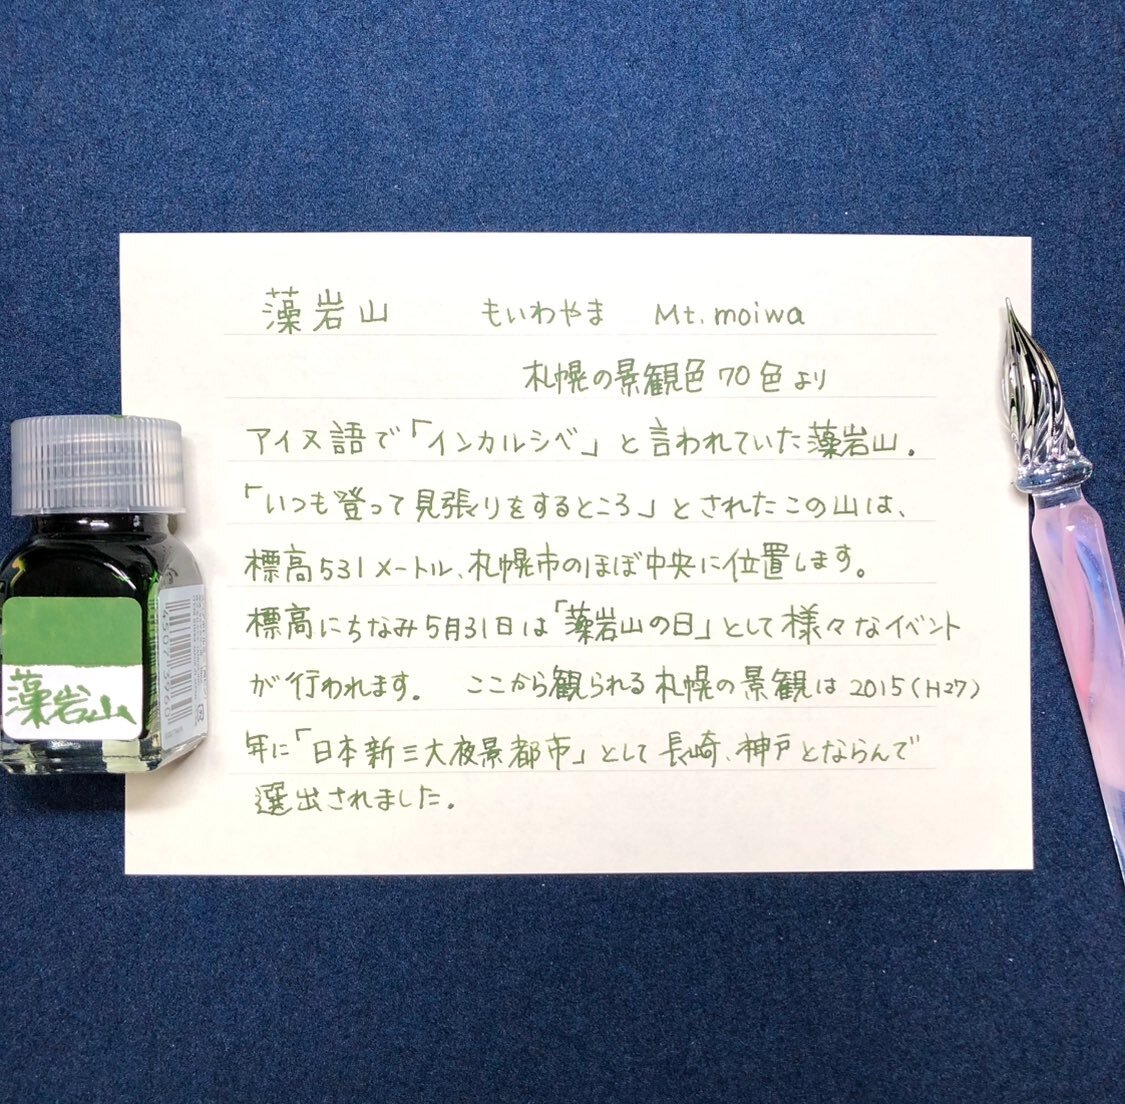 藻岩山 もいわやま Mt. moiwa
札幌の景観色70色より
アイヌ語で「インカルシベ」と言われていた藻岩山。
「いつも登って見張りをするところ」とされたこの山は、
標高531メートル、札幌市のほぼ中央に位置します。
標高にちなみ5月31日は「藻岩山の日」として様々なイベント
が行われます。 ここから観られる札幌の景観は2015(H27)
年に「日本新三大夜景都市」として長崎、神戸とならんで
選出されました。
藻岩山